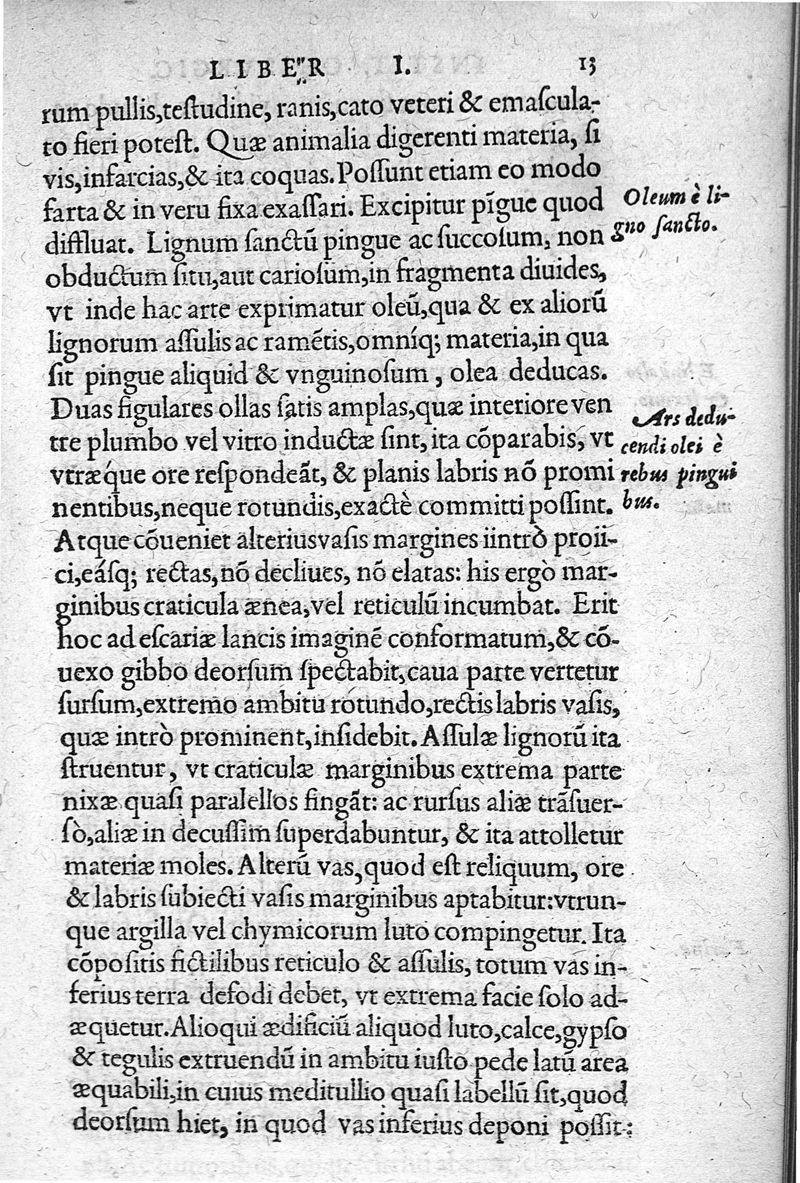 LIBER I. 13
rum pullis,teſtudine, ranis,cato veteri & emaſcula-
to fieri poteſt. Quæ animalia digerenti materia, ſi
vis,infarcias,& ita coquas.Poſſunt etiam eo modo
farta & in veru fixa exaſſari. Excipitur pīgue quod
diffluat. Lignum ſanctū pingue ac ſuccoſum, non
Oleum è li-
gno ſancto.
obductum ſitu,aut carioſum,in fragmenta diuides,
vt inde hac arte exprimatur oleū,qua & ex aliorū
lignorum aſſulis ac ramētis,omníq; materia,in qua
ſit pingue aliquid & vnguinoſum , olea deducas.
Duas figulares ollas ſatis amplas,quæ interiore ven
tre plumbo vel vitro inductæ ſint, ita cōparabis, vt
vtræq́ue ore reſpondeāt, & planis labris nō promi
nentibus,neque rotundis,exactè committi poſſint.
Ars dedu-
cendi olei è
rebus pingui
bus.
Atque cōueniet alterius vaſis margines iintrò proii-
ci,eáſq; rectas,nō decliues, nō elatas: his ergò mar-
ginibus craticula ænea,vel reticulū incumbat. Erit
hoc ad eſcariæ lancis imaginē conformatum,& cō-
uexo gibbo deorſum ſpectabit,caua parte vertetur
ſurſum,extremo ambitu rotundo,rectis labris vaſis,
quæ intrò prominent,inſidebit. Aſſulæ lignorū ita
ſtruentur, vt craticulæ marginibus extrema parte
nixæ quaſi paralellos fingāt: ac rurſus aliæ trāſuer-
ſò,aliæ in decuſſim ſuperdabuntur, & ita attolletur
materiæ moles. Alterū vas,quod eſt reliquum, ore
& labris ſubiecti vaſis marginibus aptabitur:vtrun-
que argilla vel chymicorum luto compingetur. Ita
cōpoſitis fictilibus reticulo & aſſulis, totum vas in-
ferius terra defodi debet, vt extrema facie ſolo ad-
æquetur. Alioqui ædificiū aliquod luto,calce,gypſo
& tegulis extruendū in ambitu iuſto pede latū area
æquabili,in cuius meditullio quaſi labellū ſit,quod
deorſum hiet, in quod vas inferius deponi poſſit: